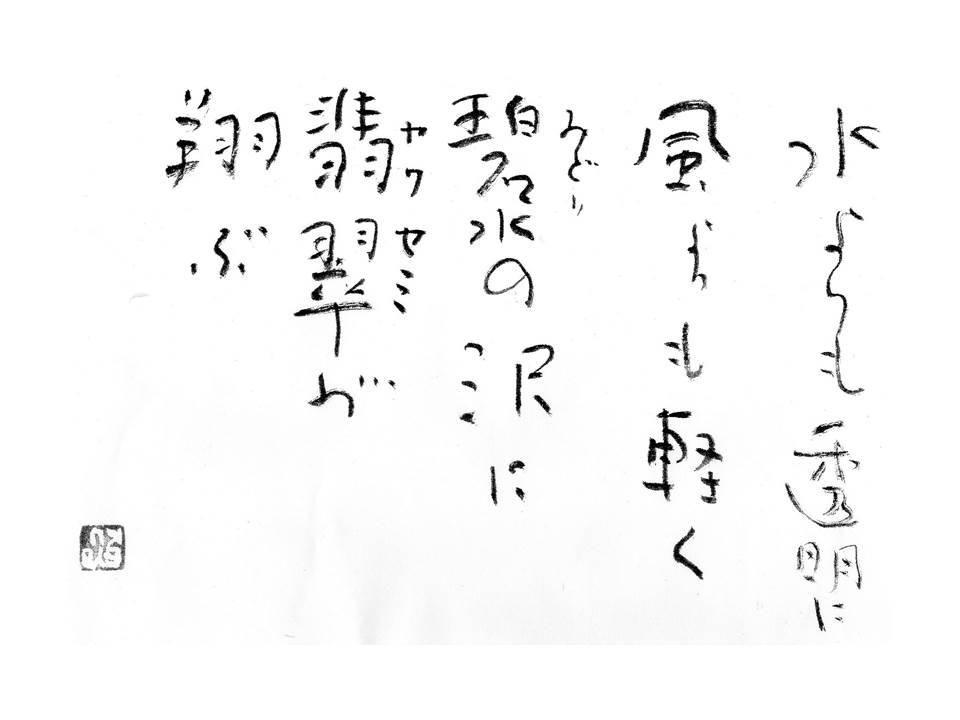 水よりも透明に
風よりも軽く
碧水の沢に
みどり
翡翠が
カワセミ
翔ぶ